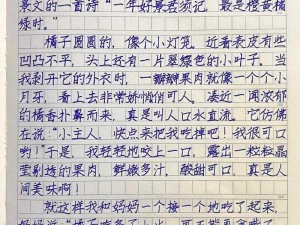 景文的一首诗“一年好景君须记，最是橙黄橘
绿时。”
橘子圆圆的，像个小灯笼。近看表皮有些
凹凸不平，头上还有一片翠绿色的小叶子。当
我剥开它的外衣时，一瓣瓣果肉就像一个个小
月牙，看上去非常娇俏可人。凑近一闻浓郁
的橘香扑鼻而来，真是叫人口水直流。它仿佛
在说：“小主人，快点来把我吃掉吧！我很可口
哟！”于是，我轻轻地咬上一口，露出一粒粒晶
莹剔透的果肉，鲜嫩多汁，酸甜可口，真是人
间美味啊！
就这样我和妈妈一个接一个地吃了起来，